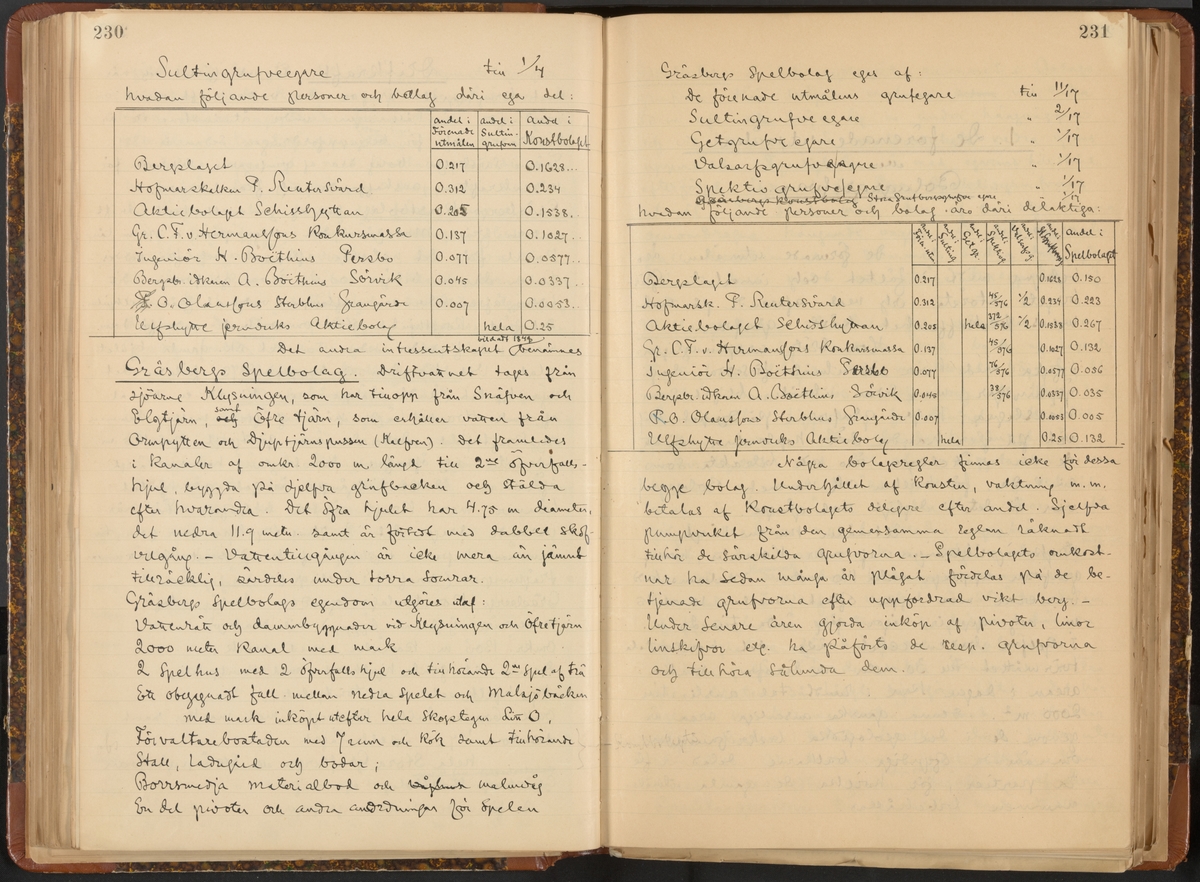 230
Sultingrufveegare till 1/4
hvadan följande personer och bolag däri ega del:
andel i Förenade utmålen andel i Sultin-grufvan Andel i Konstbolaget
Bergslaget 0.217 0.1628...
Hofmarskalken P. Reuterswärd 0.312 0.234
Aktiebolaget Schisshyttan 0.205 0.1538..
Gr. C.F. v Hermanssons Konkursmassa 0.137 0.1027..
Ingeniör H. Boëthius Persbo 0.077 0.0577..
Bergsbr. idkaren A. Boëthius Sörvik 0.045 0.0337..
P.O. Olanssons Sterbhus Grangärde 0.007 0.0053..
Elfshytte jernvärks Aktiebolag hela 0.25
Det andra intressentskapet bildadt 1849 benämnes
Gräsbergs Spelbolag. Driftvattnet tages från
sjöarne Klysningen, som har tillopp från Snöfven och
Elgtjärn, samt Öfre tjärn, som erhåller vatten från
Ormpytten och Djuptjärnspussen (Kalfven). Det framledes
i kanaler af omkr 2000 m längd till 2ne öfverfalls-
hjul, byggda på sjelfva grufbacken och stälda
efter hvarandra. Det öfra hjulet har 4.75 m diameter,
det nedra 11.9 metr. samt är försedt med dubbel skof-
velgång. – Vattentillgången är icke mera än jämnt
tillräcklig, särdeles under torra somrar.
Gräsbergs Spelbolags egendom utgöres utaf:
Vattenrätt och dammbyggnader vid Klysningen och Öfretjärn
2000 meter Kanal med mark
2 Spelhus med 2 öfverfallshjul och tillhörande 2ne spel af trä
Ett obegagnadt fall mellan nedra Spelet och Malsjöbäcken
med mark inköpt utefter hela Skogstegen Litt O,
Förvaltarebostaden med 7 rum och kök samt tillhörande
Stall, ladugård och bodar;
Borrsmedja materialbod och malmvåg
En del pivoter och andra anordningar för Spelen
231
Gräsbergs Spelbolag eges af:
De förenade utmålens grufegare till 11/17
Sultingrufveegare " 2/17
Getgrufveegare " 1/17
Valsarfsgrufveegare " 1/17
Spektivgrufveegne " 1/17
Stora Grufbergsgrufvan egne 1/17
hvadan följande personer och bolag äro däri delaktiga:
andel i Sulting andel i Getgr. andel i Spektivg andel i andel i Spelbolaget
Bergslaget 0.217 0.1628 0.150
Hofmarsk. P. Reuterswärd 0.312 45/376 1/2 0.234 0.223
Aktiebolaget Schisshyttan 0.205 hela 172/376 1/2 0.1538 0.267
Gr. C.F. v. Hermanssons Konkursmassa 0.137 45/376 0.1027 0.132
Ingeniör H. Boëthius Persbo 0.077 76/376 0.0577 0.056
Bergsbr. idkaren A. Boëthius Sörvik 0.045 38/376 0.0337 0.035
P.O. Olanssons Sterbhus Grangärde 0.007 0.0053 0.005
Elfshytte jernvärks Aktiebolag hela 0.25 0.132
Några bolagsregler finnas icke för dessa
begge bolag. Underhållet af konsten, vaktning m.m.
betalas af Konstbolagets delegare efter andel. Sjelfva
pumpvirket från den gemensamma reglan räknadt
tillhör de särskilda grufvorna. – Spelbolagets omkost-
nar ha sedan många år plägat fördelas på de be-
tjenade grufvorna efter uppfordrad vikt berg. –
Under senare åren gjorda inköp af pivoter, linor
linskifvor etc. ha påförts de resp. grufvorna
och tillhöra sålunda dem.